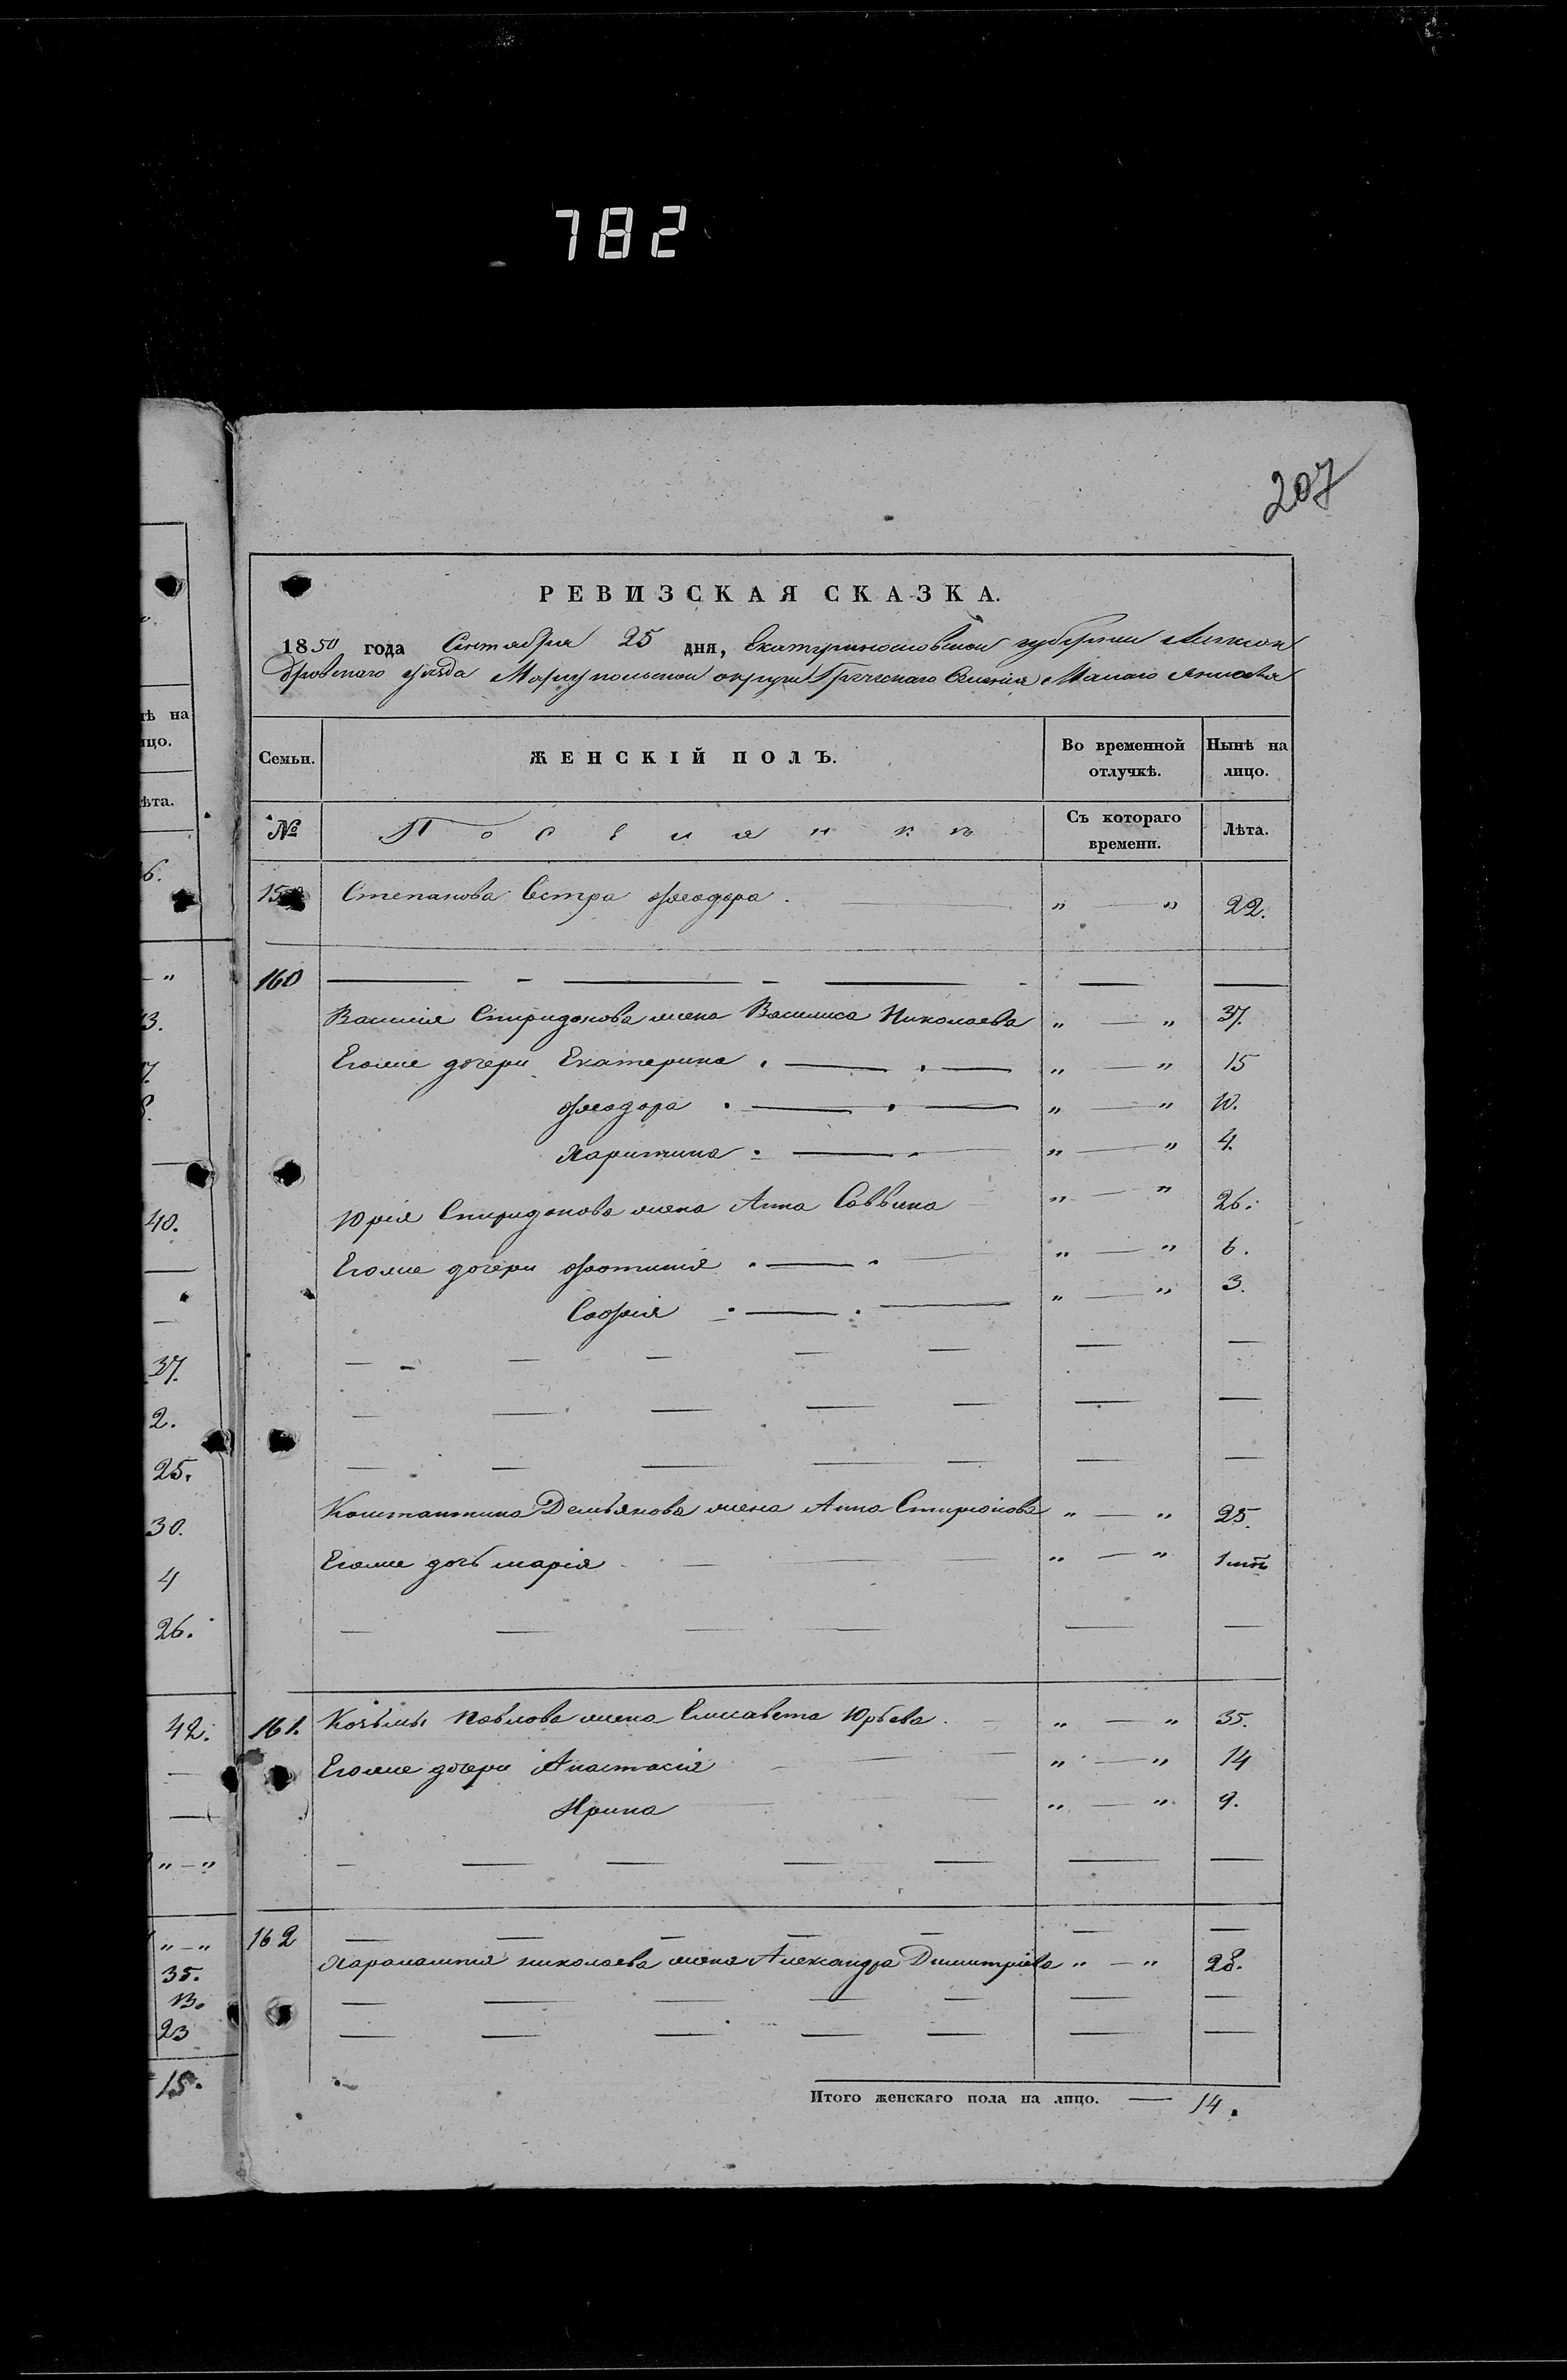 782
207
РЕВИЗСКАЯ СКАЗКА.
1850 года Сентября 25 дня, Екатеринославской губерніи Александ
бровскаго уѣзда Маріупольской округи Греческаго Селенія Малаго Янисоля
Семьи. ЖЕНСКІЙ ПОЛЪ. Во временной отлучкѣ. Нынѣ на лицо.
№ Поселянкъ Съ котораго времени. Лѣта.
Степанова Сестра Феодора. " — " 22.
160
Василія Спиридонова жена Василиса Николаева " — " 37.
Егоже дочери Екатерина " — " 15
Феодора " — " 10.
Харитина " — " 4.
Юрія Спиридонова жена Анна Саввина " — " 26.
Егоже дочери Фотинія " — " 6.
Софія " — " 3.
Константина Демьянова жена Анна " — " 25.
Егоже дочь марія " — " 1
161. Козьмы Павлова жена Елисавета Юрьева. " — " 35.
Егоже дочери Анастасія " — " 14
Ирина " — " 9.
162
Харалампія николаева жена Александра Димитріева " — " 28.
Итого женскаго пола на лицо. — 14.
нѣ на
ицо.
ѣта.
6.
— "
3.
7.
8.
40.
37.
2.
25.
30.
4
26.
42.
" — "
" — "
35.
13.
23
15.